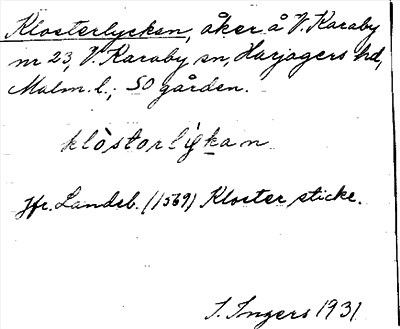 Klosterlycken, åker å V. Karaby
nr 23, V. Karaby sn, Harjagers hd,
Malm. l.; SO gården.
klòstorlykan
Jfr. Landsb. (1569) Kloster sticke.
I. Ingers 1931